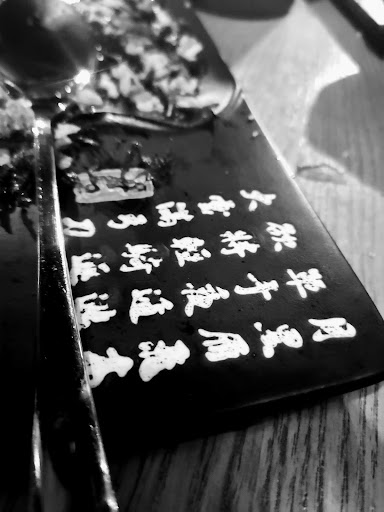 月黑雁飛高
單于夜遁逃
欲將輕騎逐
大雪滿弓刀